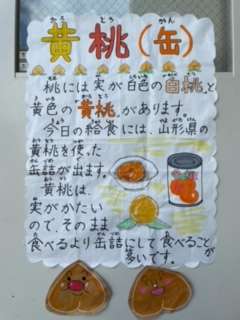 黄桃(缶)
桃には実が白色の白桃と
黄色の"黄桃"があります。
今日の給食には、山形県の
黄桃を使った
缶詰が出ます。
黄桃は、
実がかたい
ので、そのまま
食べるより缶詰にして食べることが
多いです。